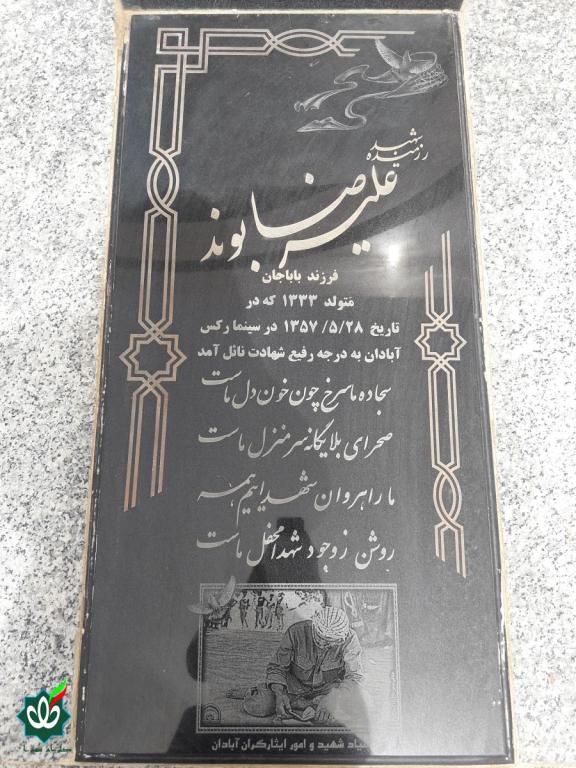 رزمنده شهید
علیرضا بوند
فرزند باباجان
متولد ۱۳۳۳ که در
تاریخ ۱۳۵۷/۵/۲۸ در سینما رکس
آبادان به درجه رفیع شهادت نائل آمد
سجاده ما سرخ چون خون دل ماست
صحرای بلا یگانه سر منزل ماست
ما راهروان شهدا ییم همه
روشن ز وجود شهدا محفل ماست
شهید و امور ایثارگران آبادان